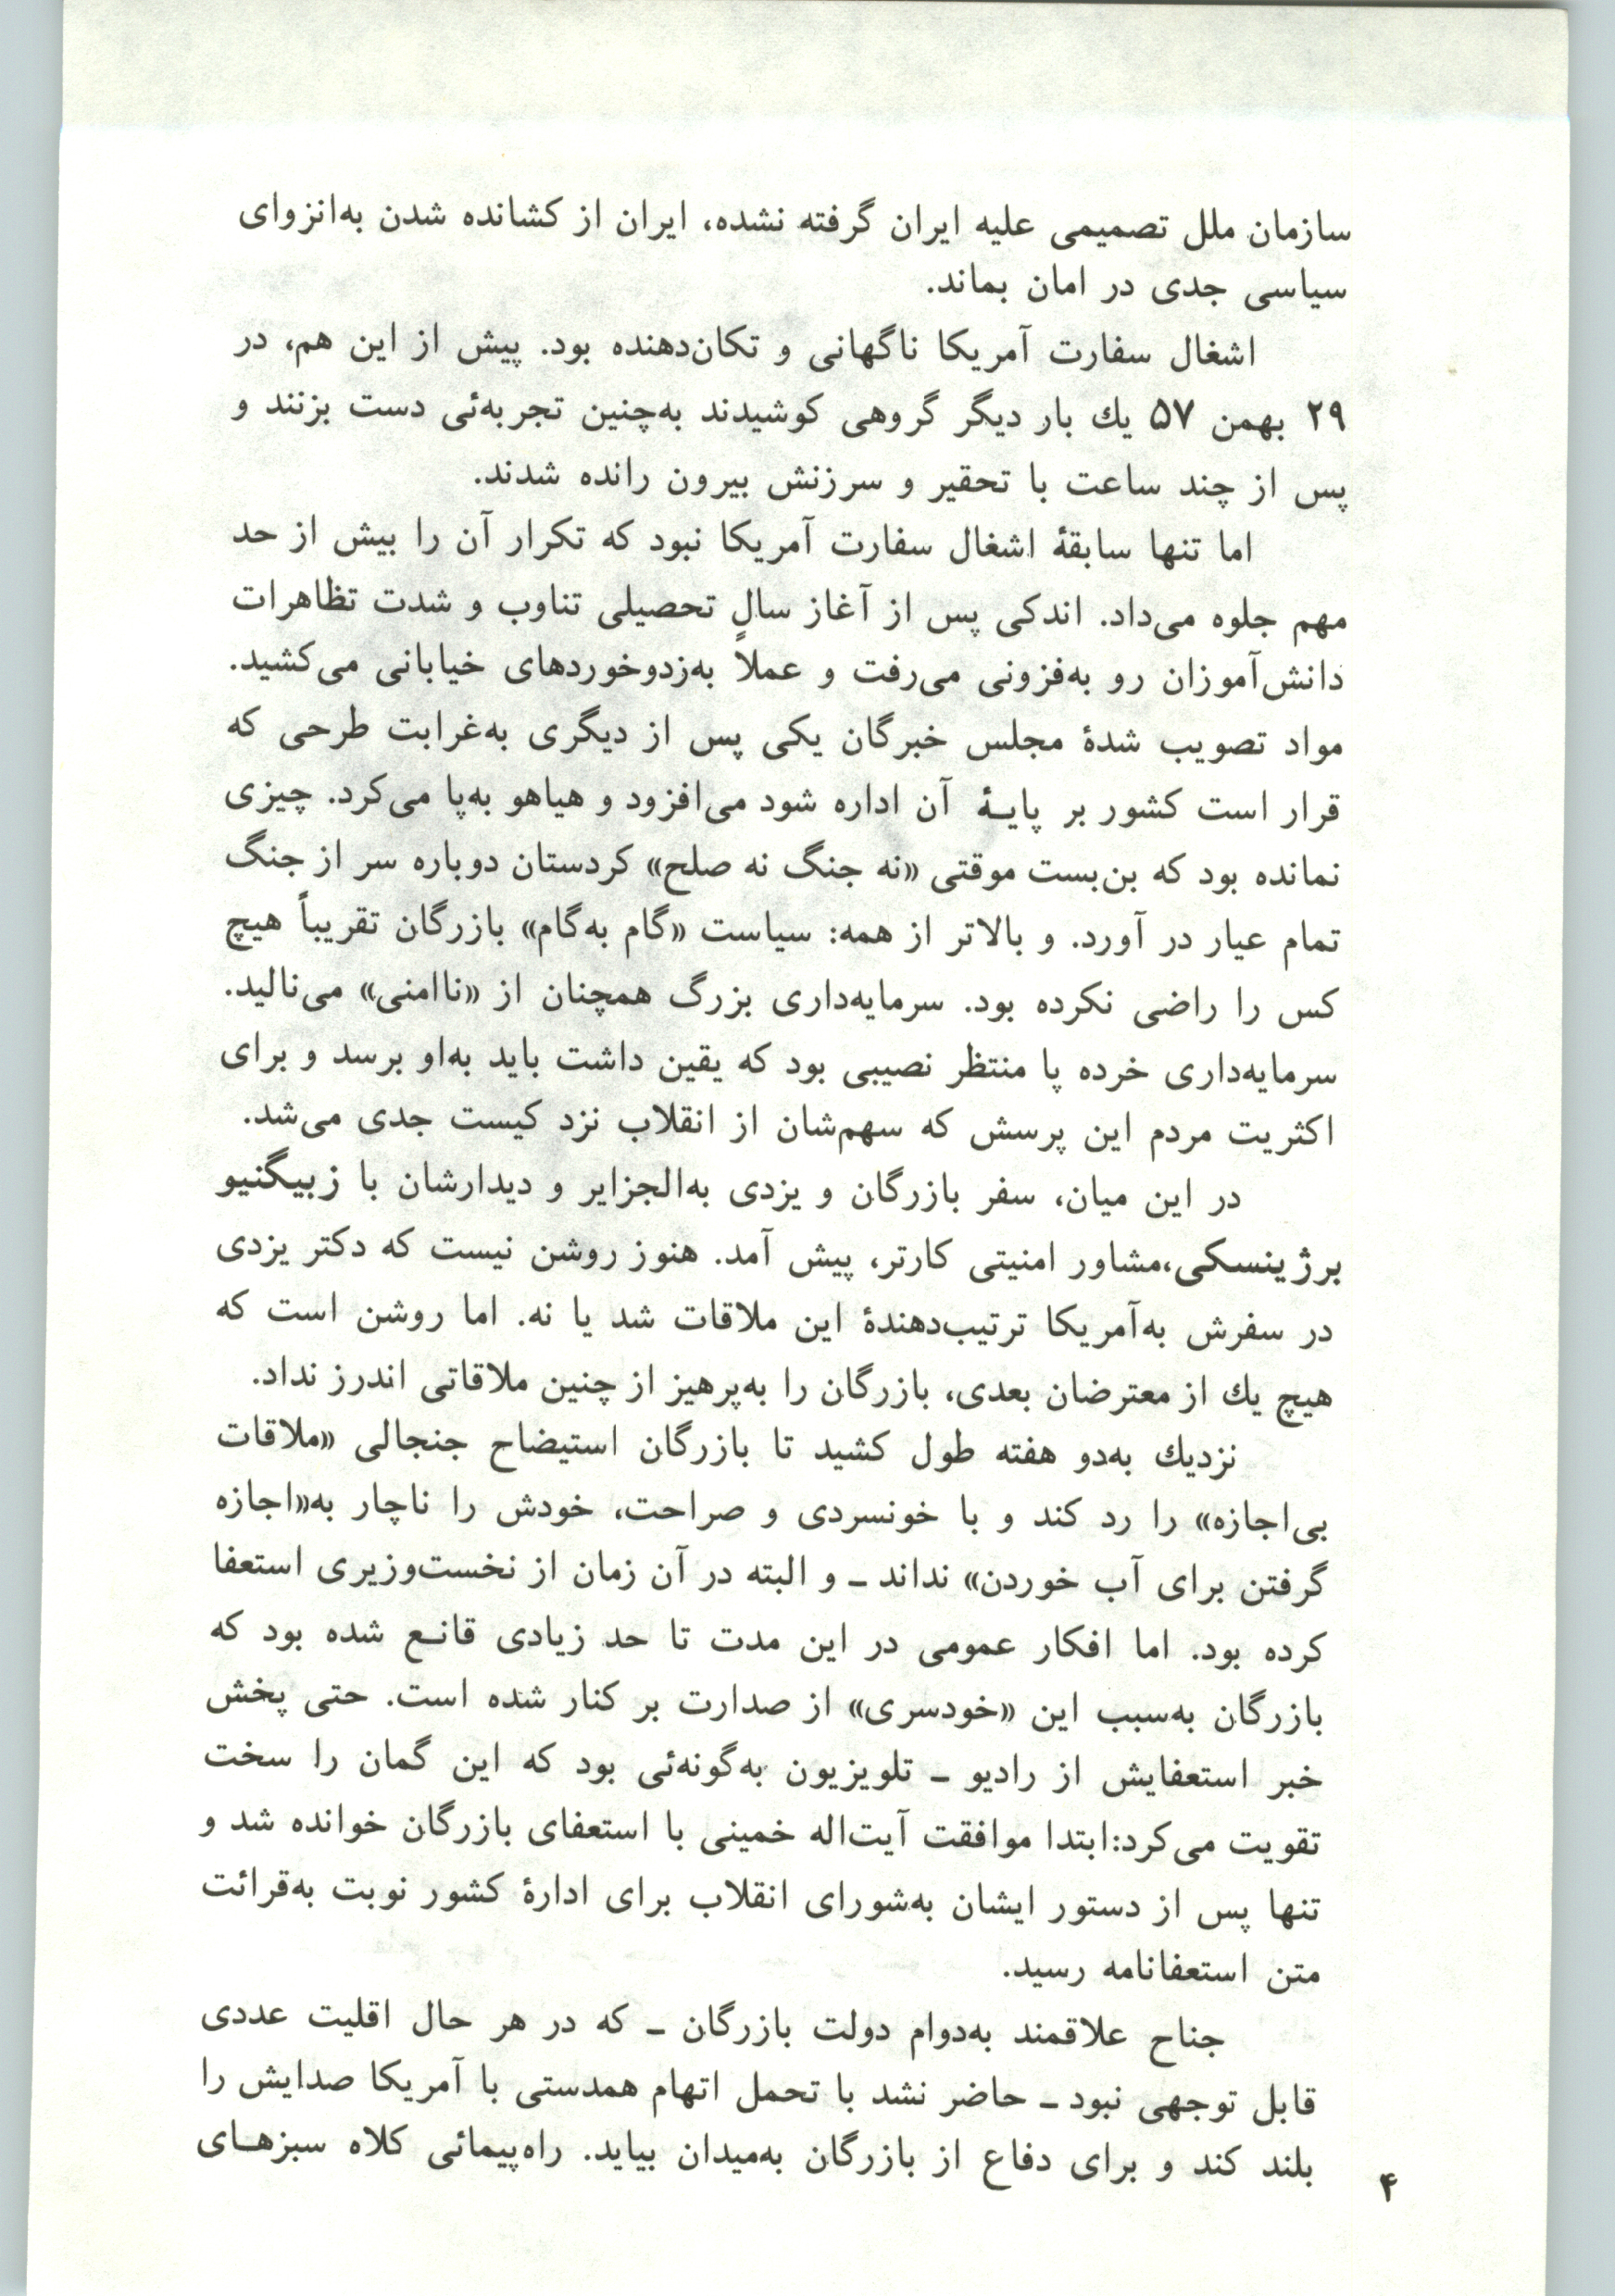 سازمان ملل تصمیمی علیه ایران گرفته نشده، ایران از کشانده شدن به‌انزوای
سیاسی جدی در امان بماند.
اشغال سفارت آمریکا ناگهانی و تکان‌دهنده بود. پیش از این هم، در
۲۹ بهمن ۵۷ یك بار دیگر گروهی کوشیدند به‌چنین تجربه‌ئی دست بزنند و
پس از چند ساعت با تحقیر و سرزنش بیرون رانده شدند.
اما تنها سابقهٔ اشغال سفارت آمریکا نبود که تکرار آن را بیش از حد
مهم جلوه می‌داد. اندکی پس از آغاز سالِ تحصیلی تناوب و شدت تظاهرات
دانش‌آموزان رو به‌فزونی می‌رفت و عملاً به‌زدوخوردهای خیابانی می‌کشید.
مواد تصویب شدهٔ مجلس خبرگان یکی پس از دیگری به‌غرابت طرحی که
قرار است کشور بر پایـهٔ آن اداره شود می‌افزود و هیاهو به‌پا می‌کرد. چیزی
نمانده بود که بن‌بست موقتی «نه جنگ نه صلح» کردستان دوباره سر از جنگ
تمام عیار در آورد. و بالاتر از همه: سیاست «گام به‌گام» بازرگان تقریباً هیچ
کس را راضی نکرده بود. سرمایه‌داری بزرگ همچنان از «ناامنی» می‌نالید.
سرمایه‌داری خرده پا منتظر نصیبی بود که یقین داشت باید به‌او برسد و برای
اکثریت مردم این پرسش که سهم‌شان از انقلاب نزد کیست جدی می‌شد.
در این میان، سفر بازرگان و یزدی به‌الجزایر و دیدارشان با زبیگنیو
برژینسکی،مشاور امنیتی کارتر، پیش آمد. هنوز روشن نیست که دکتر یزدی
در سفرش به‌آمریکا ترتیب‌دهندهٔ این ملاقات شد یا نه. اما روشن است که
هیچ یك از معترضان بعدی، بازرگان را به‌پرهیز از چنین ملاقاتی اندرز نداد.
نزدیك به‌دو هفته طول کشید تا بازرگان استیضاح جنجالی «ملاقات
بی‌اجازه» را رد کند و با خونسردی و صراحت، خودش را ناچار به‌«اجازه
گرفتن برای آب خوردن» نداند ـ و البته در آن زمان از نخست‌وزیری استعفا
کرده بود. اما افکار عمومی در این مدت تا حد زیادی قانـع شده بود که
بازرگان به‌سبب این «خودسری» از صدارت بر کنار شده است. حتی پخش
خبر استعفایش از رادیو ـ تلویزیون به‌گونه‌ئی بود که این گمان را سخت
تقویت می‌کرد:ابتدا موافقت آیت‌اله خمینی با استعفای بازرگان خوانده شد و
تنها پس از دستور ایشان به‌شورای انقلاب برای ادارهٔ کشور نوبت به‌قرائت
متن استعفانامه رسید.
جناح علاقمند به‌دوام دولت بازرگان ـ که در هر حال اقلیت عددی
قابل توجهی نبود ـ حاضر نشد با تحمل اتهام همدستی با آمریکا صدایش را
بلند کند و برای دفاع از بازرگان به‌میدان بیاید. راه‌پیمائی کلاه سبزهـای
۴